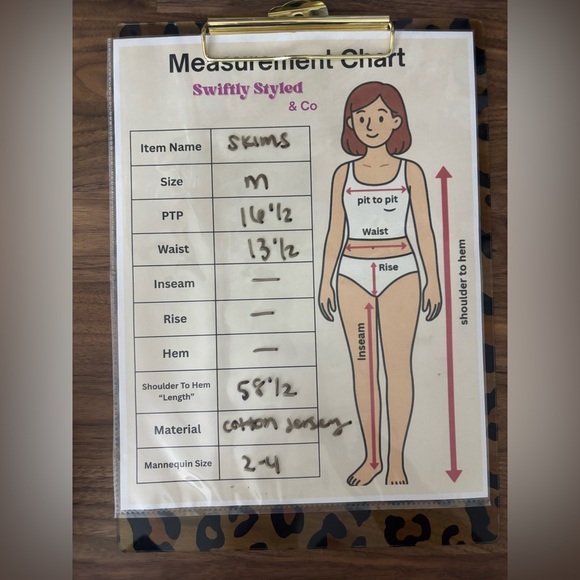 Measurement Chart
Swiftly Styled
& Co
Item Name SKIMS
Size m
PTP 16 1/2
Waist 13 1/2
Inseam —
Rise —
Hem —
Shoulder To Hem
"Length" 58 1/2
Material cotton jersey
Mannequin Size 2-4
pit to pit
Waist
Rise
Inseam
shoulder to hem